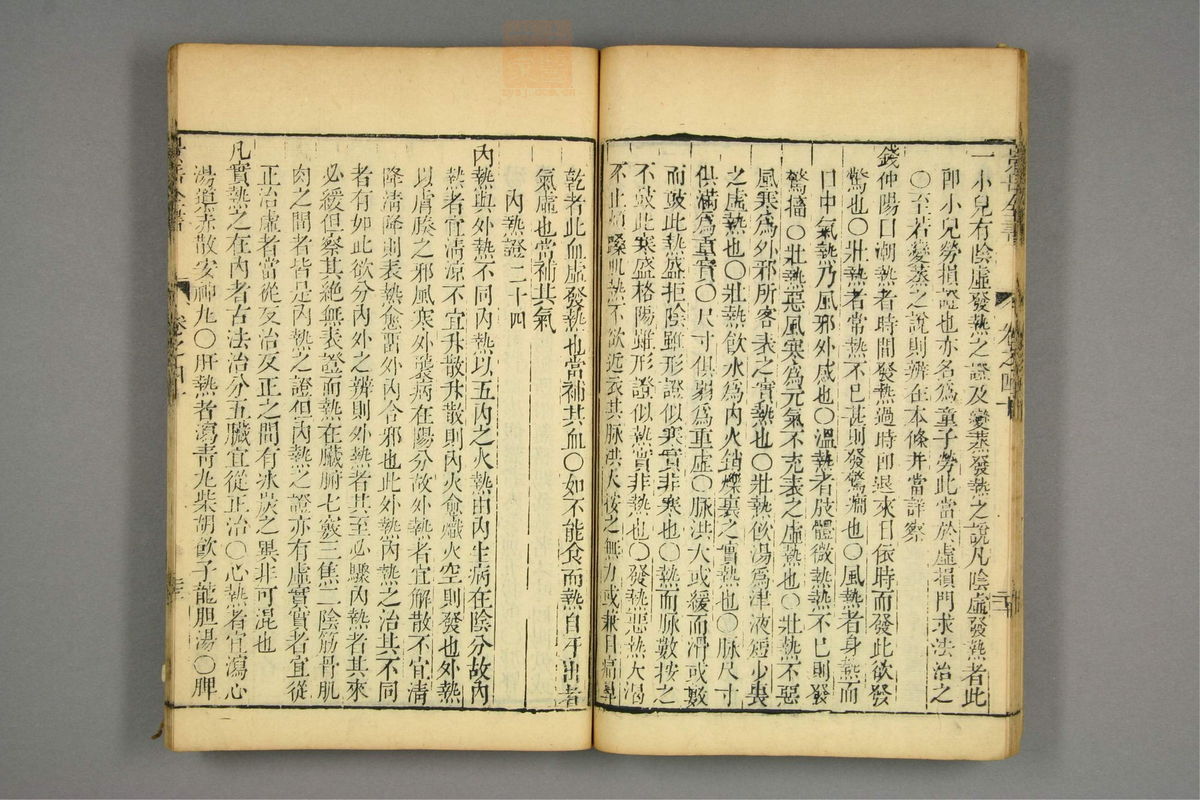 一小兒有陰虛發熱之證及變蒸發熱之說凡陰虛發熱者此
卽小兒勞損證也亦名爲童子勞此當於虛損門求法治之
〇至若變蒸之說則辨在本條并當詳察
錢仲陽曰潮熱者時間發熱過時卽退來日依時而發此欲發
驚也〇壯熱者常熱不已甚則發驚癎也〇風熱者身熱而
口中氣熱乃風邪外感也〇溫熱者肢體微熱熱不已則發
驚搐〇壯熱惡風寒爲元氣不充表之虛熱也〇壯熱不惡
風寒爲外邪所客表之實熱也〇壯熱飲湯爲津液短少裏
之虛熱也〇壯熱飲水爲內火銷爍裏之實熱也〇脉尺寸
俱滿爲重實〇尺寸俱弱爲重虛〇脉洪大或緩而滑或數
而鼓此熱盛拒陰雖形證似寒實非寒也〇熱而脉數按之
不鼓此寒盛格陽雖形證似熱實非熱也〇發熱惡熱大渴
不止煩躁肌熱不欲近衣其脉洪大按之無力或兼目痛鼻
乾者此血虛發熱也當補其血〇如不能食而熱自汗出者
氣虛也當補其氣
內熱證二十四
內熱與外熱不同內熱以五內之火熱由內生病在陰分故內
熱者宜清凉不宜升散升散則內火愈熾火空則發也外熱
以膚腠之邪風寒外襲病在陽分故外熱者宜解散不宜清
降清降則表熱愈留外內合邪也此外熱內熱之治其不同
者有如此欲分內外之辨則外熱者其至必驟內熱者其來
必緩但察其絶無表證而熱在臟腑七竅三焦二陰筋骨肌
肉之間者皆是內熱之證但內熱之證亦有虛實實者宜從
正治虛者當從反治反正之間有氷炭之異非可混也
凡實熱之在內者古法治分五臟宜從正治〇心熱者宜瀉心
湯導赤散安神丸〇肝熱者瀉青丸柴胡飲子龍胆湯〇脾